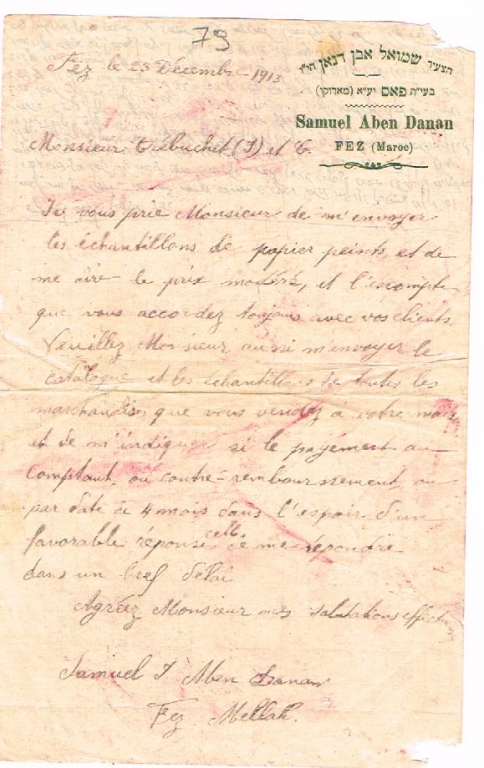 79
Fez le 23 Décembre 1913
הצעיר שמואל אבן דנאן הי"ו
בעי"ת פאס יע"א (מארוקו)
Samuel Aben Danan
FEZ (Maroc)
Monsieur Trébuchet (J) et C
Je vous prie Monsieur de m'envoyer
les échantillons de papier peints, et de
me dire le prix modéré, et l'escompte
que vous accordez toujours avec vos clients.
Veuillez Monsieur aussi m'envoyer le
catalogue et les échantillons de toutes les
marchandises que vous vendez à votre
et de m'indiquer si le payement au
comptant, ou contre-remboursement ou
par date de 4 mois dans l'espoir d'un
favorable réponse de me répondre
dans un bref délai
Agréez Monsieur mes salutations
Samuel J. Aben Danan
Fez Mellah.